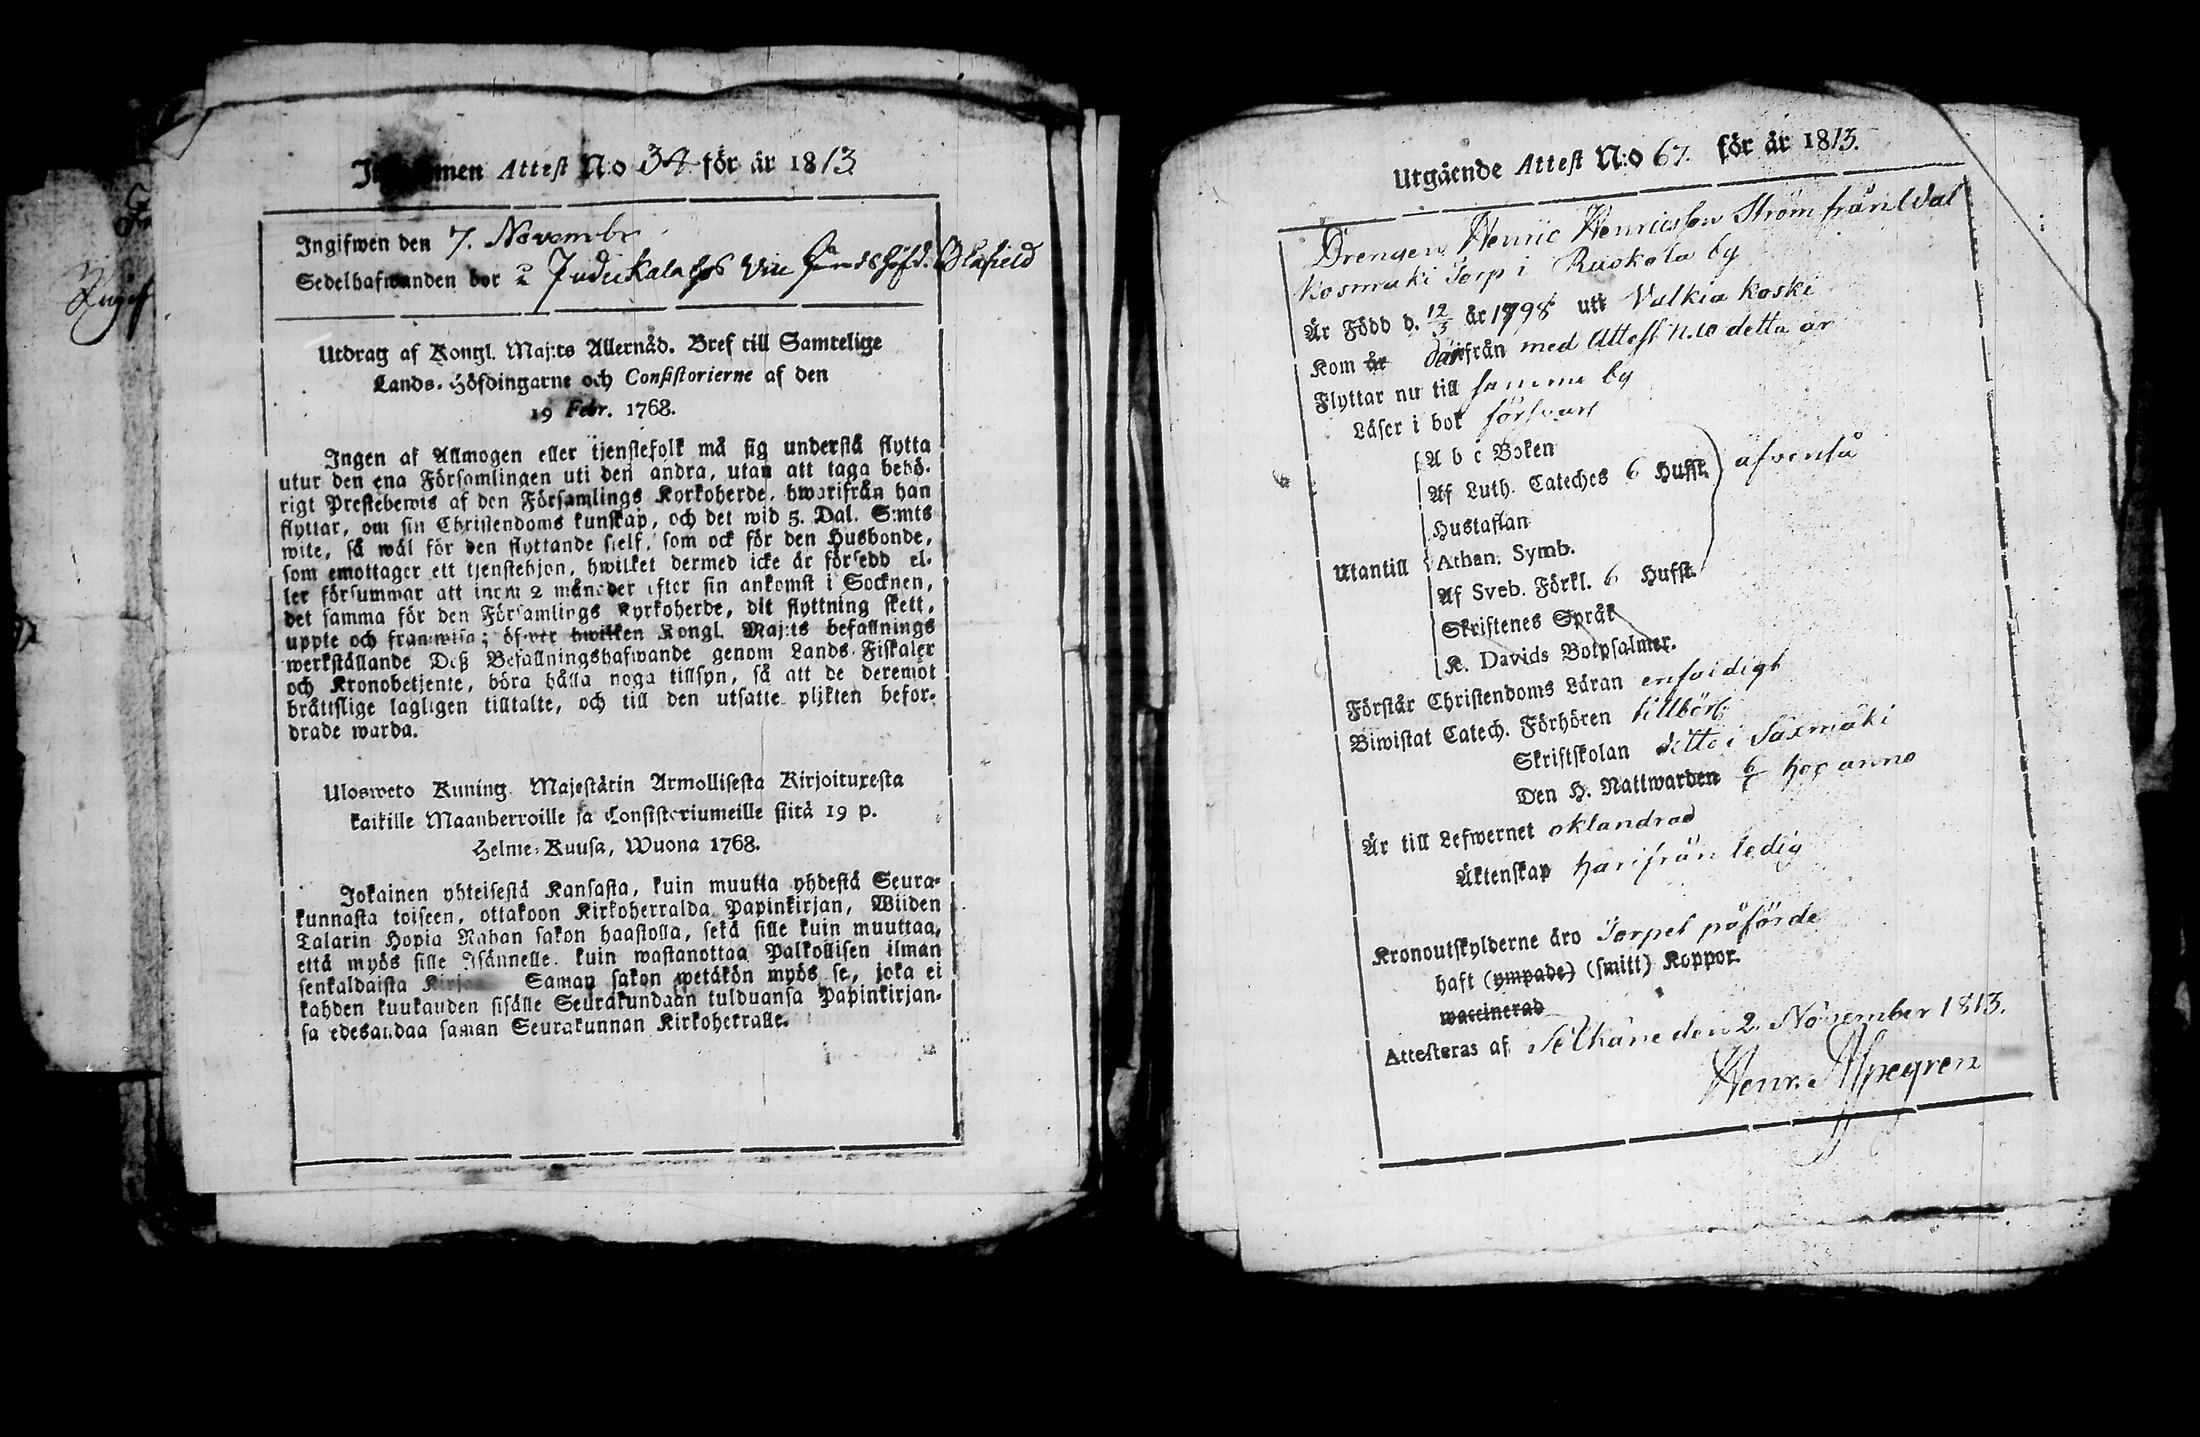 Inkommen Attest N:o 34 för år 1813
Ingifwen den 7. Novembr
Sedelhafwanden bor
Utdrag af Kongl. Maj:ts Allernåd. Bref till Samtelige
Lands-Höfdingarne och Consistorierne af den
19 Febr. 1768.
Ingen af Allmogen eller tjenstefolk må sig understå flytta
utur den ena Församlingen uti den andra, utan att taga behö-
rigt Prestebewis af den Församlings Korkoherde, hwarifrån han
flyttar, om sin Christendoms kunskap, och det wid 5. Dal. S:mts
wite, så wäl för den flyttande sielf, som ock för den Husbonde,
som emottager ett tjenstehjon, hwilket dermed icke är försedd el-
ler försummar att inom 2 månader efter sin ankomst i Socknen,
det samma för den Församlings Kyrkoherde, dit flyttning skett,
uppte och framwisa; öfwer hwilken Kongl. Maj:ts befallnings
werkställande Deß Befallningshafwande genom Lands Fiskaler
och Kronobetjente, böra hålla noga tillsyn, så att de deremot
bråttslige lagligen tilltalte, och till den utsatte plikten befor-
drade warda.
Ulosweto Kuning. Majestätin Armollisesta Kirjoituxesta
kaikille Maanherroille ja Consistoriumeille siitä 19 p.
Helme-Kuusa, Wuona 1768.
Jokainen yhteisestä Kansasta, kuin muutta yhdestä Seura-
kunnasta toiseen, ottakoon Kirkoherralda Papinkirjan, Wiiden
Talarin Hopia Rahan sakon haastolla, sekä sille kuin muuttaa,
että myös sille Isännelle, kuin wastanottaa Palkollisen ilman
senkaldaista Kirjan Saman sakon wetäkön myös se, joka ei
kahden kuukauden sisälle Seurakundaan tulduansa Papinkirjan-
sa edesandaa saman Seurakunnan Kirkoherralle.
Utgående Attest N:o 67. för år 1813.
Drengen Henric Henricsson Ström från Wal
kosmäki Torp i Ruokola by
Är Född d. 12/3 år 1798 uti Valkiakoski
Kom år därifrån med Attest N:10 detta år
Flyttar nu till samma by
Läser i bok försvarl
A b c Boken
Af Luth. Cateches 6 Hufst. äfvenså
Hustaflan
Utantill Athan. Symb.
Af Sveb. Förkl. 6 Hufst.
Skriftenes Språk
K. Davids Botpsalmer.
Förstår Christendoms Läran enfaldigt
Biwistat Catech. Förhören tillbörl:
Skriftskolan ditto i Saxmäki
Den H. Nattwarden 6/6 hoc anno
Är till Lefwernet oklandrad
Äktenskap härifrån ledig
Kronoutskylderne äro Torpet påförde
haft (ympade) (smitt) Koppor.
waccinerad
Attesteras af Selkäne den 2. November 1813.
Henr. Alpegren